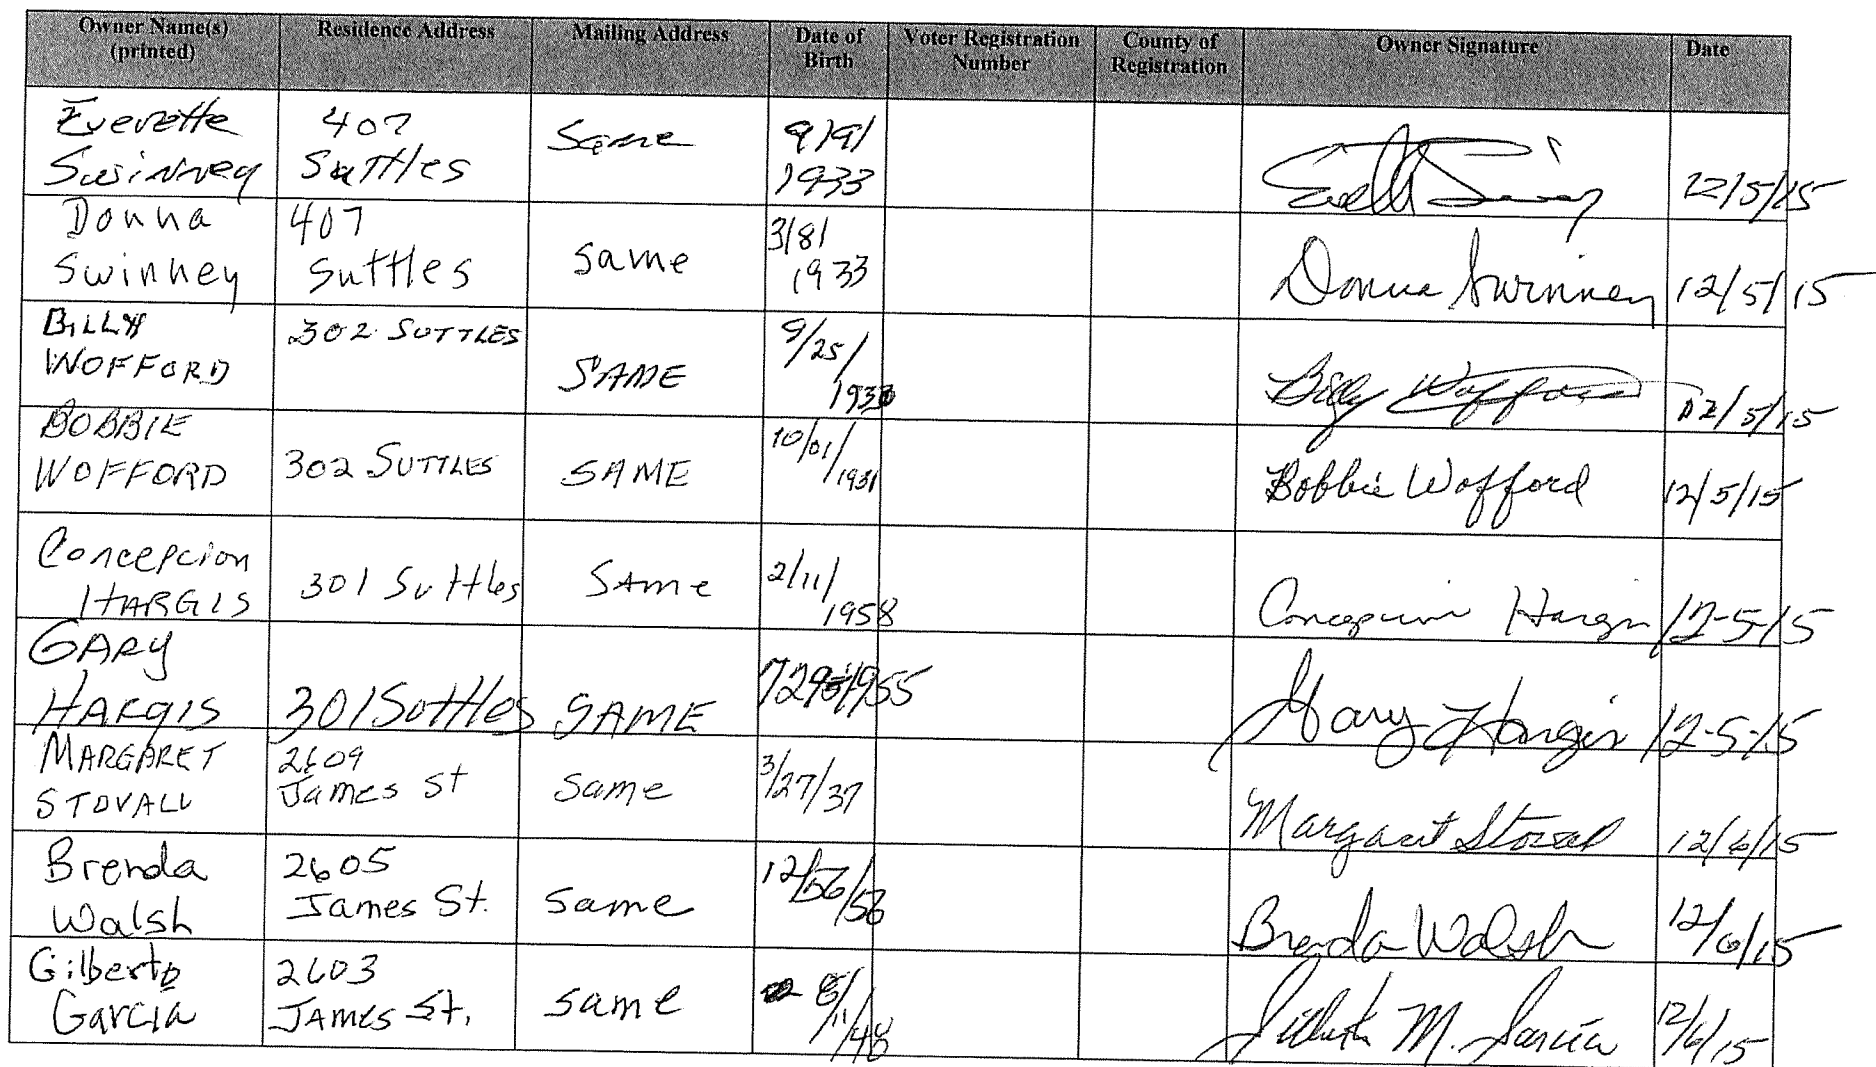 Owner Name(s) (printed) Residence Address Mailing Address Date of Birth Voter Registration Number County of Registration Owner Signature Date
Everette Swinney 407 Suttles Same 9/9/1933 12/5/15
Donna Swinney 407 Suttles same 3/8/1933 Donna Swinney 12/5/15
BILLY WOFFORD 302 SUTTLES SAME 9/25/ Billy Wofford 12/5/15
BOBBIE WOFFORD 302 SUTTLES SAME 10/01/1931 Bobbie Wofford 12/5/15
Concepcion HARGIS 301 Suttles SAme 2/11/1958 Concepcion Hargis 12-5-15
GARY HARGIS 301 Suttles SAME Gary Hargis 12-5-15
MARGARET STOVALL 2609 James St same 3/27/37 Margaret Stovall 12/6/15
Brenda Walsh 2605 James St. same Brenda Walsh 12/6/15
Gilberto Garcia 2603 JAMES St. same 8/11/48 M. Garcia 12/6/15